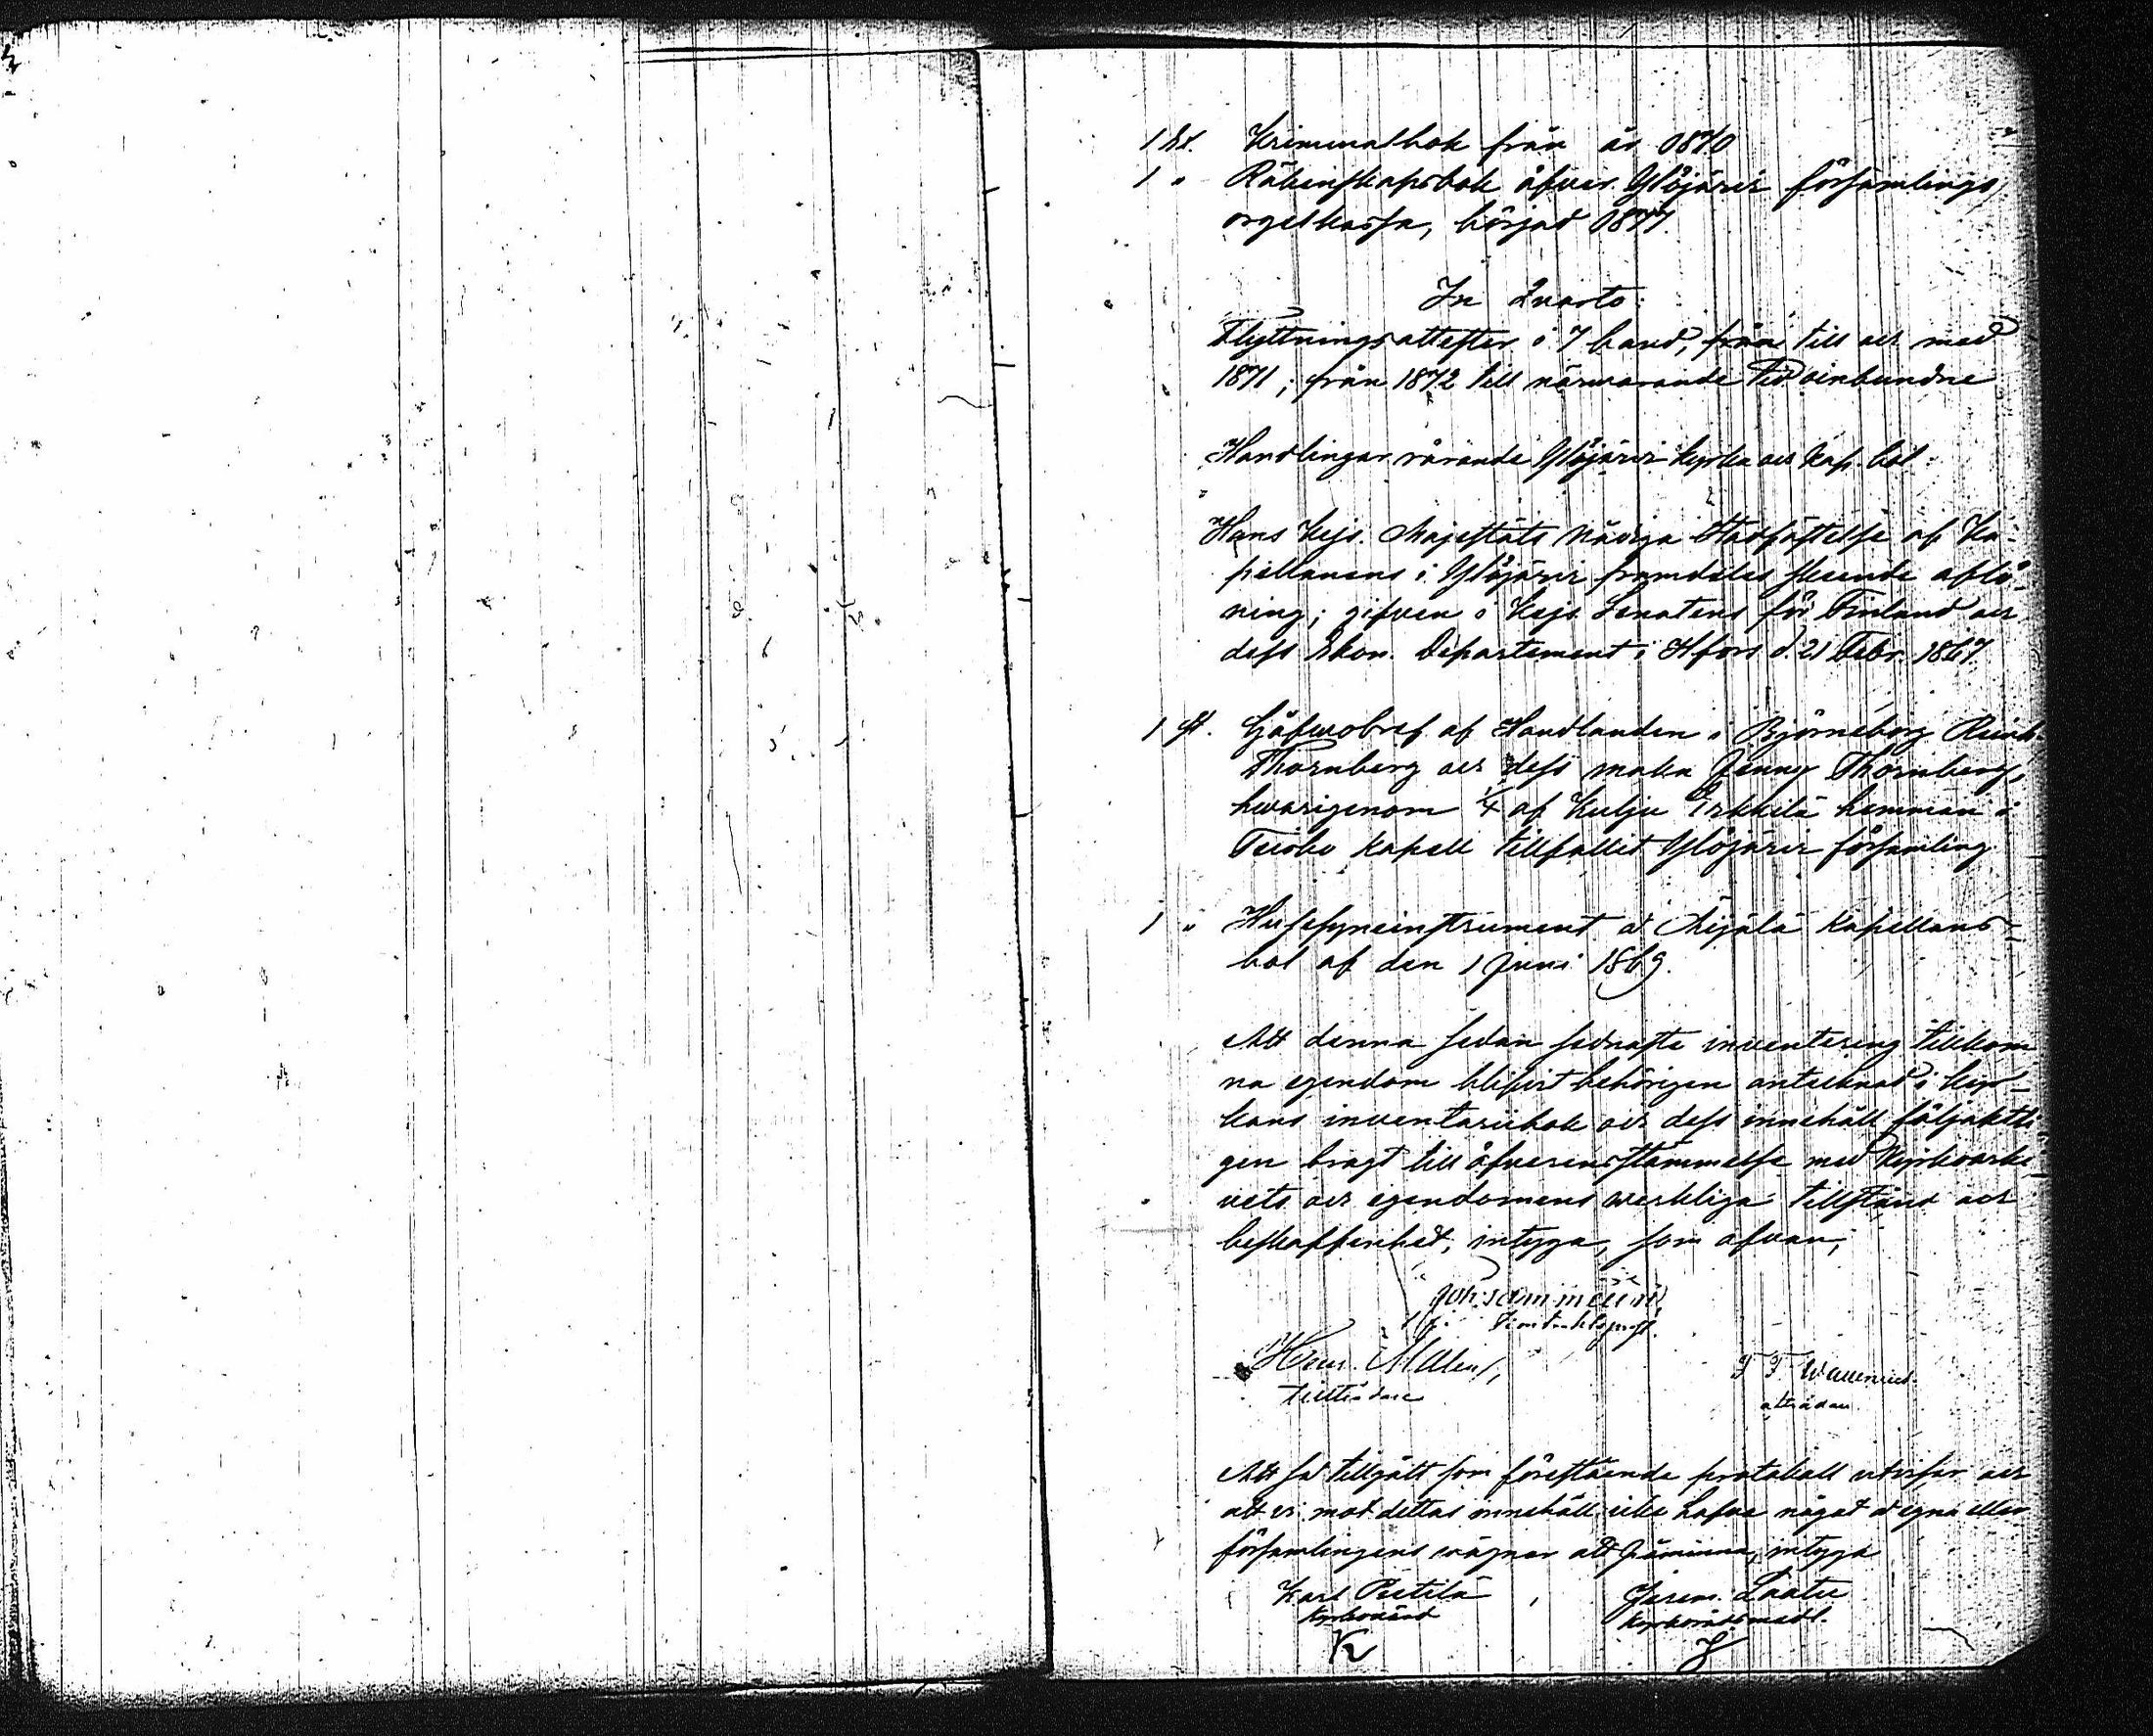 1 st. Kriminalbok från år 1870
1 " Räkenskapsbok öfver Ylöjärvi församlings
orgelkassa, börjad 1877.
In Quarto:
Flyttningsattester i 7 band, från till och med
1871; från 1872 till närvarande tid oinbundne
Handlingar rörande Ylöjärvi kyrka och kap. bol
Hans Kejs. Majestäts Nådiga Stadfästelse af Ka-
pellanens i Ylöjärvi framdeles skeende aflö-
ning; gifven i Kejs. Senatens för Finland och
dess Ekon. Departement i Hfors d. 21 Febr. 1867.
1 st. Gåfvobref af Handlanden i Björneborg Reinh.
Thornberg och dess maka Jenny Thornberg,
hvarigenom 1/4 af Kulju Erkkilä hemman i
Teisko kapell tillfallit Ylöjärvi församling
1 " Husesynsinstrument å Äijälä Kapellans-
bol af den 1 Juni 1869.
Att denna sedan sednaste inventering tillkom
na egendom blifvit behörigen antecknad i kyr-
kans inventariebok och dess innehåll följaktli-
gen bragt till öfverensstämmelse med Kyrkoarki-
vets och egendomens verkliga tillstånd och
beskaffenhet, intyga, som ofvan;
Kontraktsprost.
tillträdare
afträdare
Att så tillgått som förestående protokoll utvisar och
att vi mot dettas innehåll icke hafva något å egna eller
församlingens vägnar att påminna, intyga
Karl Pietilä Jerem. Laatu
Kyrkovärd Kyrkorådsmedl.
K J